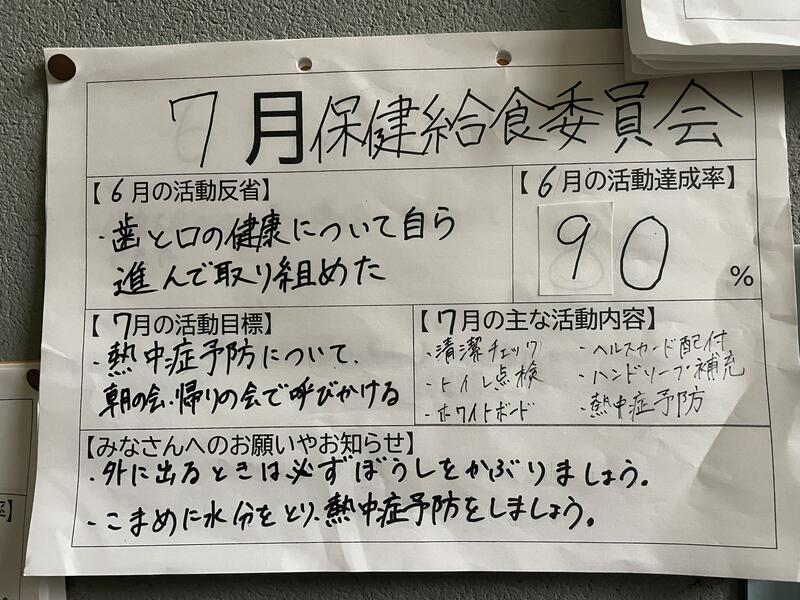 7月保健給食委員会
【6月の活動反省】
・歯と口の健康について自ら
進んで取り組めた
【6月の活動達成率】
90%
【7月の活動目標】
・熱中症予防について、
朝の会、帰りの会で呼びかける
【7月の主な活動内容】
・清潔チェック
・トイレ点検
・ホワイトボード
・ヘルスカード配付
・ハンドソープ補充
・熱中症予防
【みなさんへのお願いやお知らせ】
・外に出るときは、必ずぼうしをかぶりましょう。
・こまめに水分をとり、熱中症予防をしましょう。